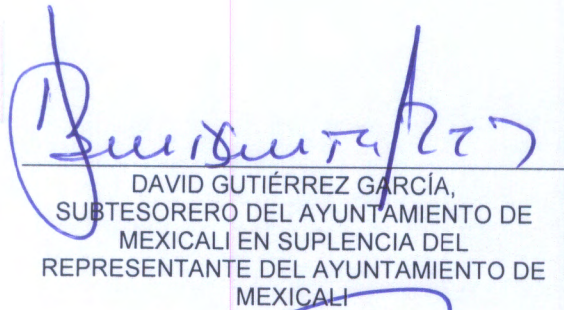 DAVID GUTIÉRREZ GARCÍA,
SUBTESORERO DEL AYUNTAMIENTO DE
MEXICALI EN SUPLENCIA DEL
REPRESENTANTE DEL AYUNTAMIENTO DE
MEXICALI